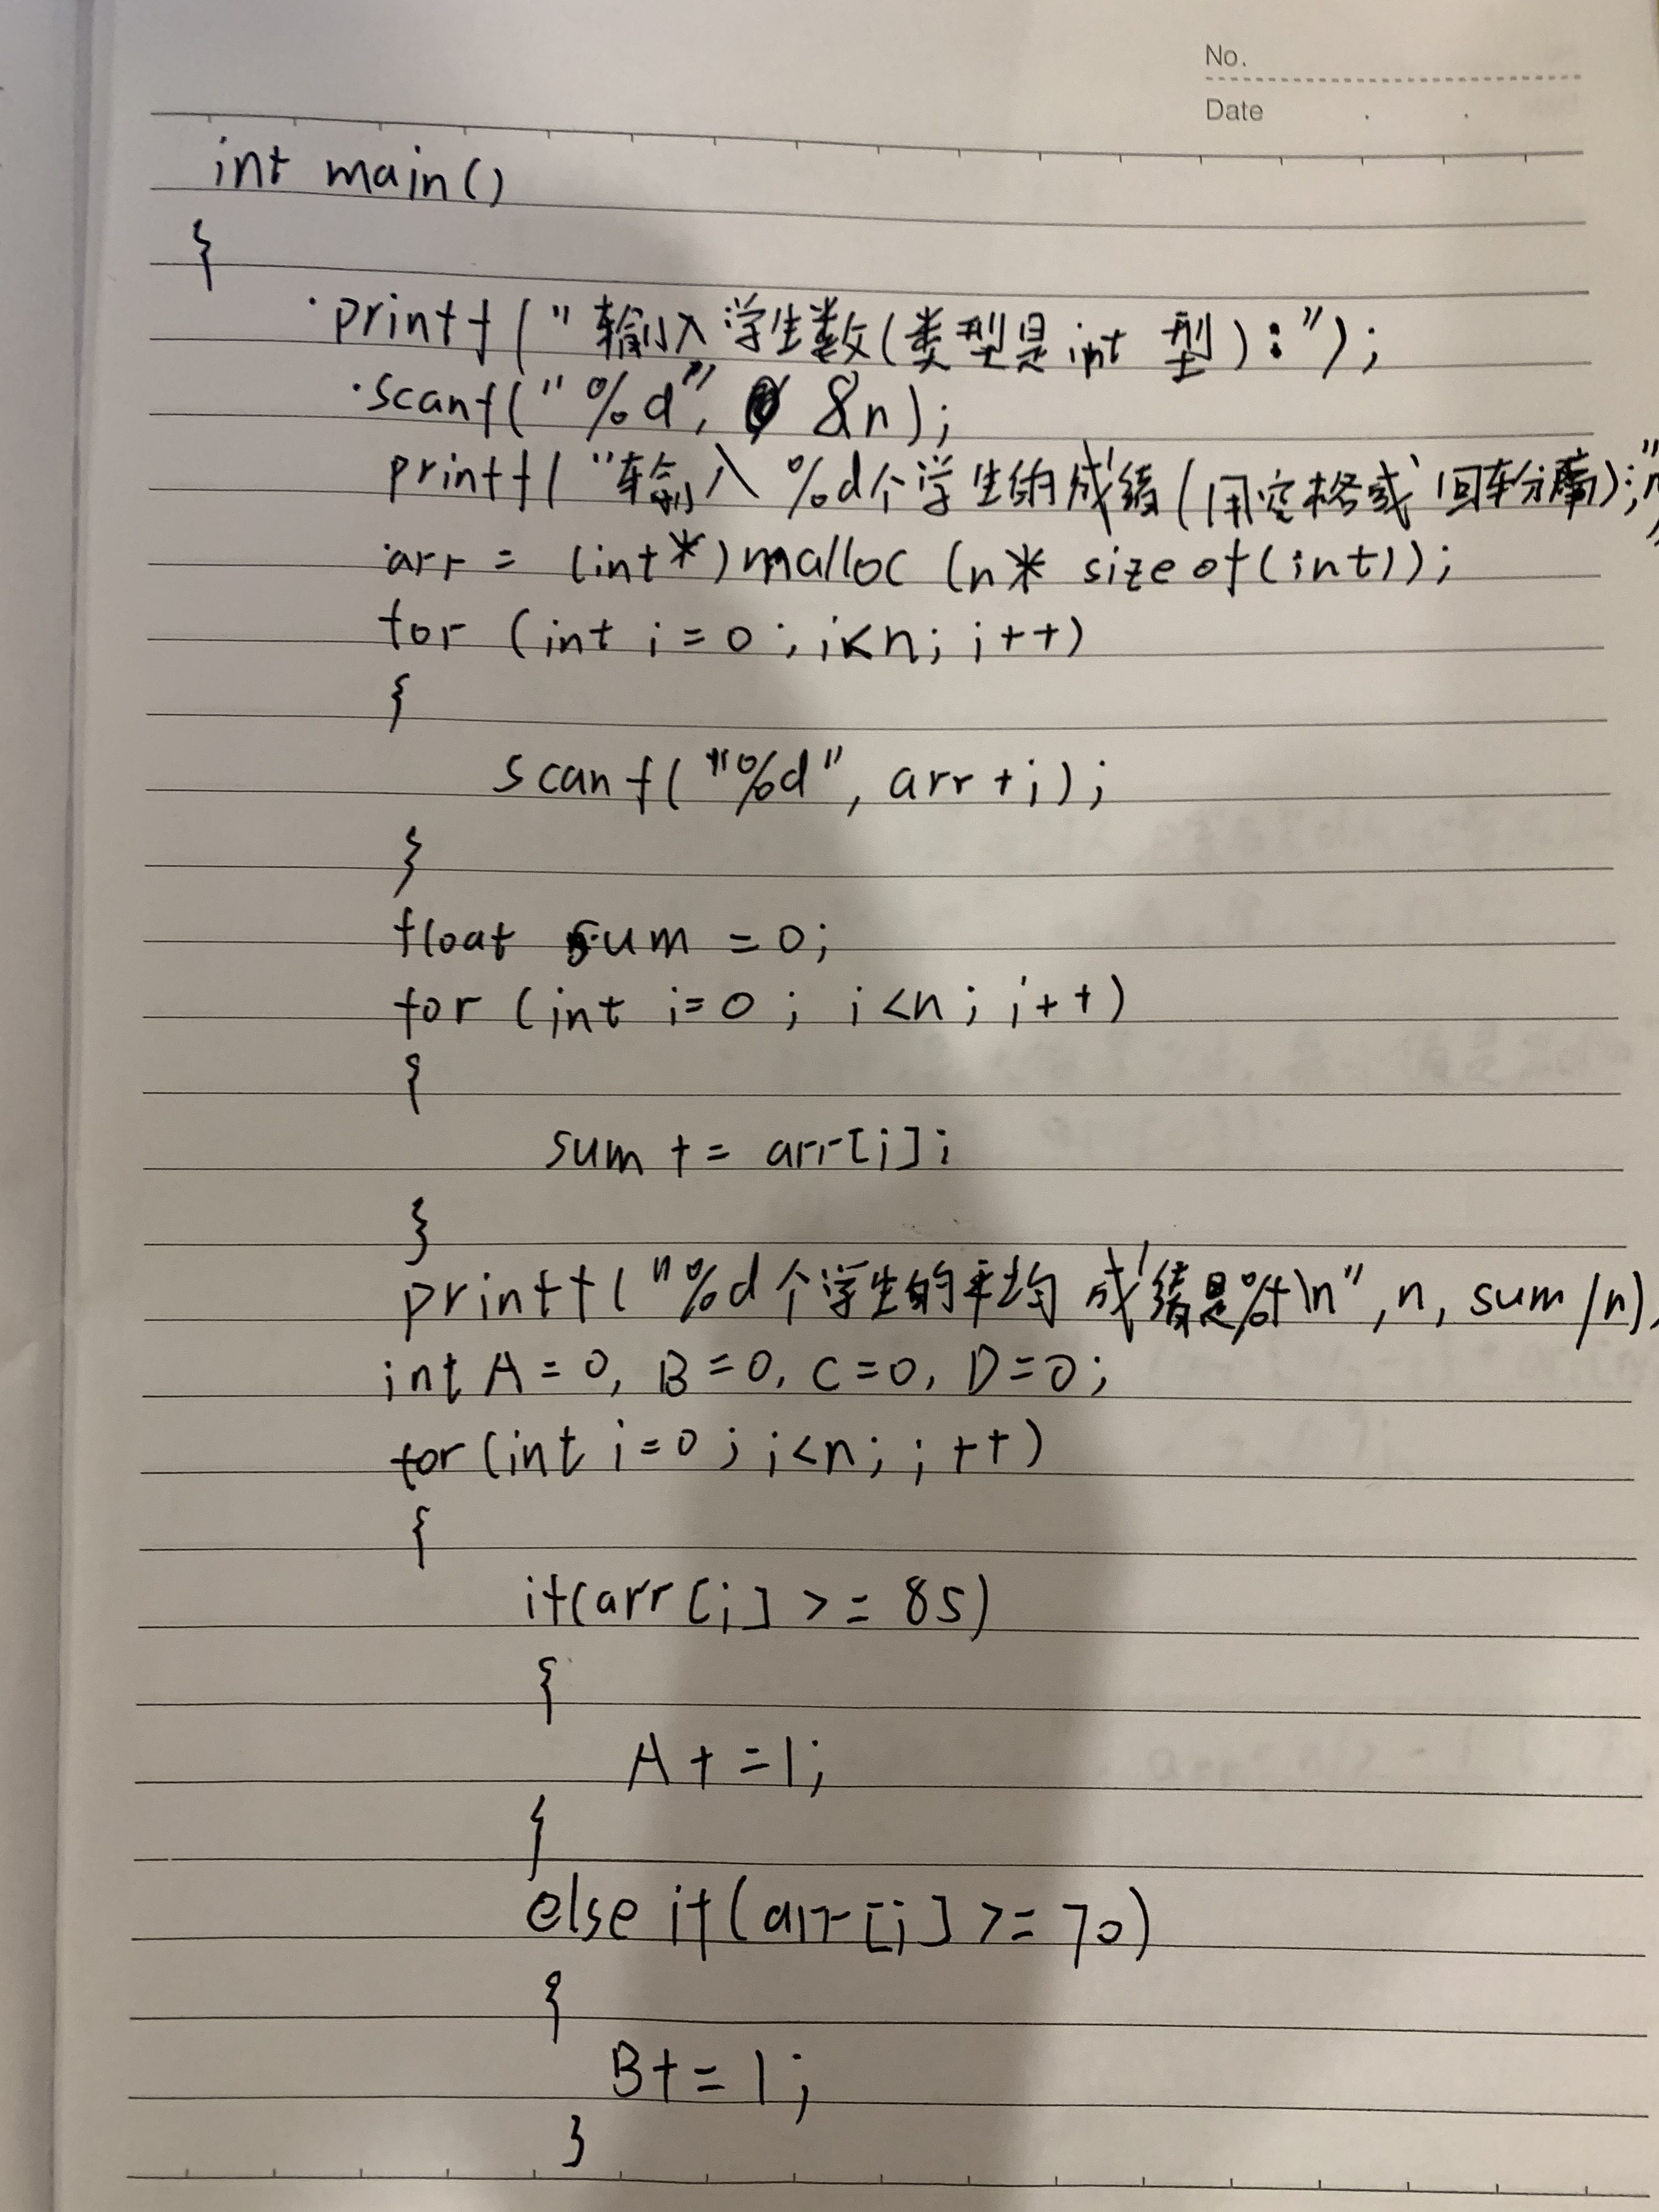 No.
Date
int main()
{
printf("输入学生数(类型是int 型):");
scanf("%d", &n);
printf("输入 %d个学生的成绩(用空格或回车分离):",
arr = (int*)malloc (n* sizeof(int));
for (int i=0; i<n; i++)
{
scanf("%d", arr+i);
}
float sum =0;
for (int i=0; i<n; i++)
{
sum += arr[i];
}
printf("%d个学生的平均成绩是%f\n", n, sum/n);
int A=0, B=0, C=0, D=0;
for(int i=0; i<n; i++)
{
if(arr[i] >= 85)
{
A+=1;
}
else if(arr[i] >= 70)
{
B+=1;
}